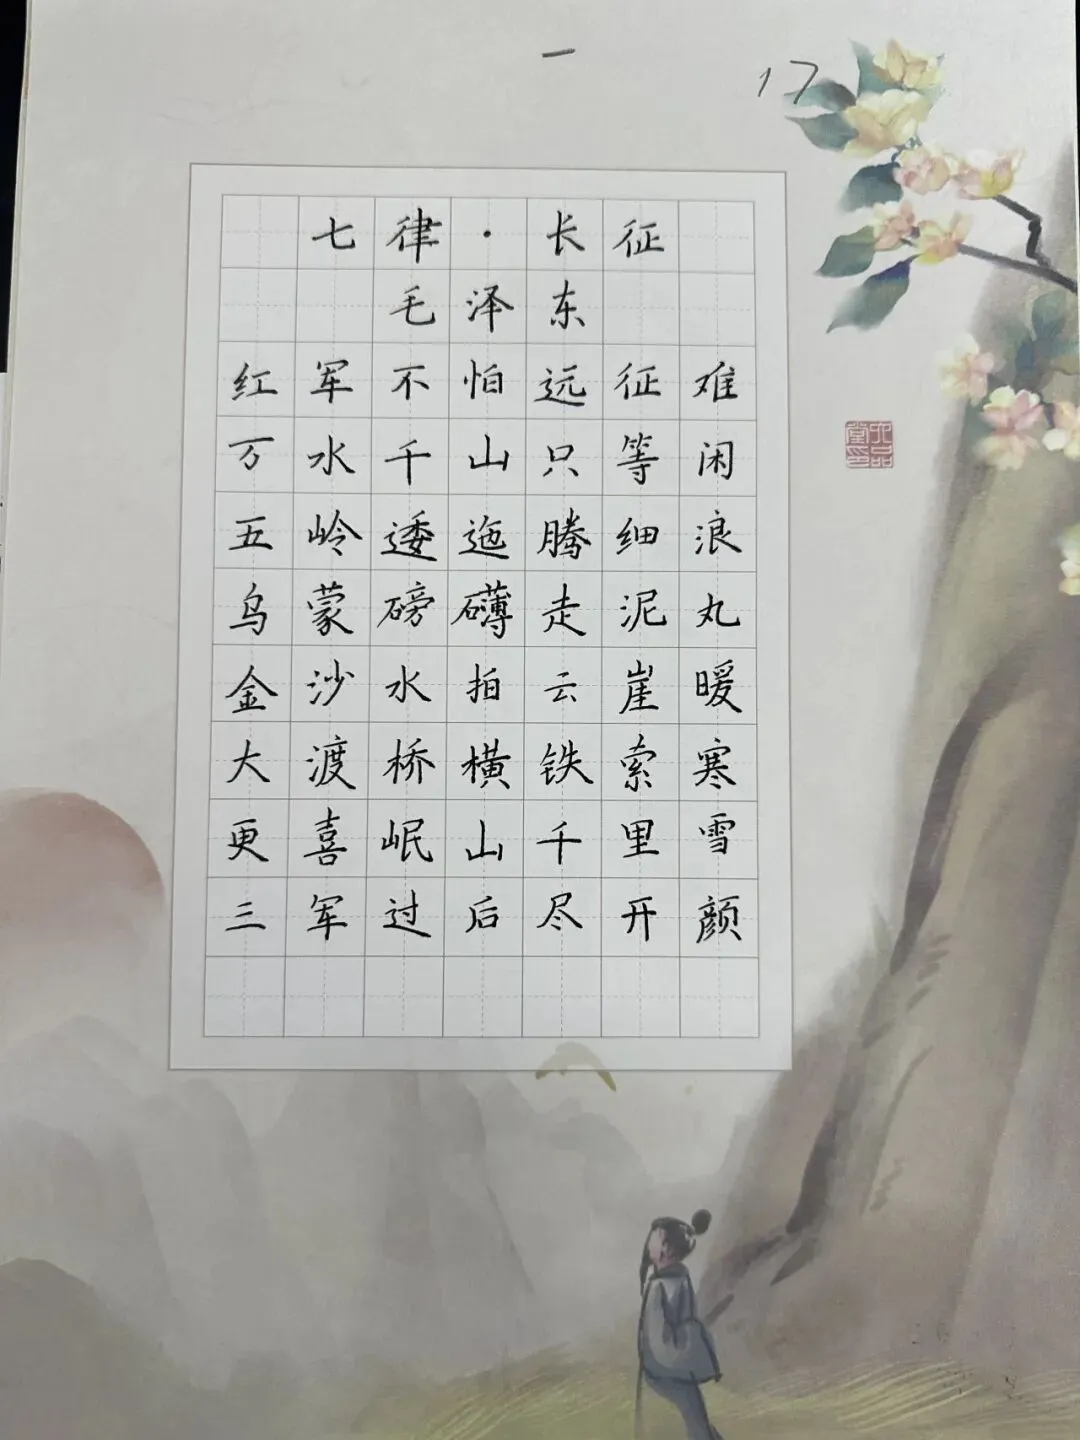 一
17
七律·长征
毛泽东
红军不怕远征难
万水千山只等闲
五岭逶迤腾细浪
乌蒙磅礴走泥丸
金沙水拍云崖暖
大渡桥横铁索寒
更喜岷山千里雪
三军过后尽开颜